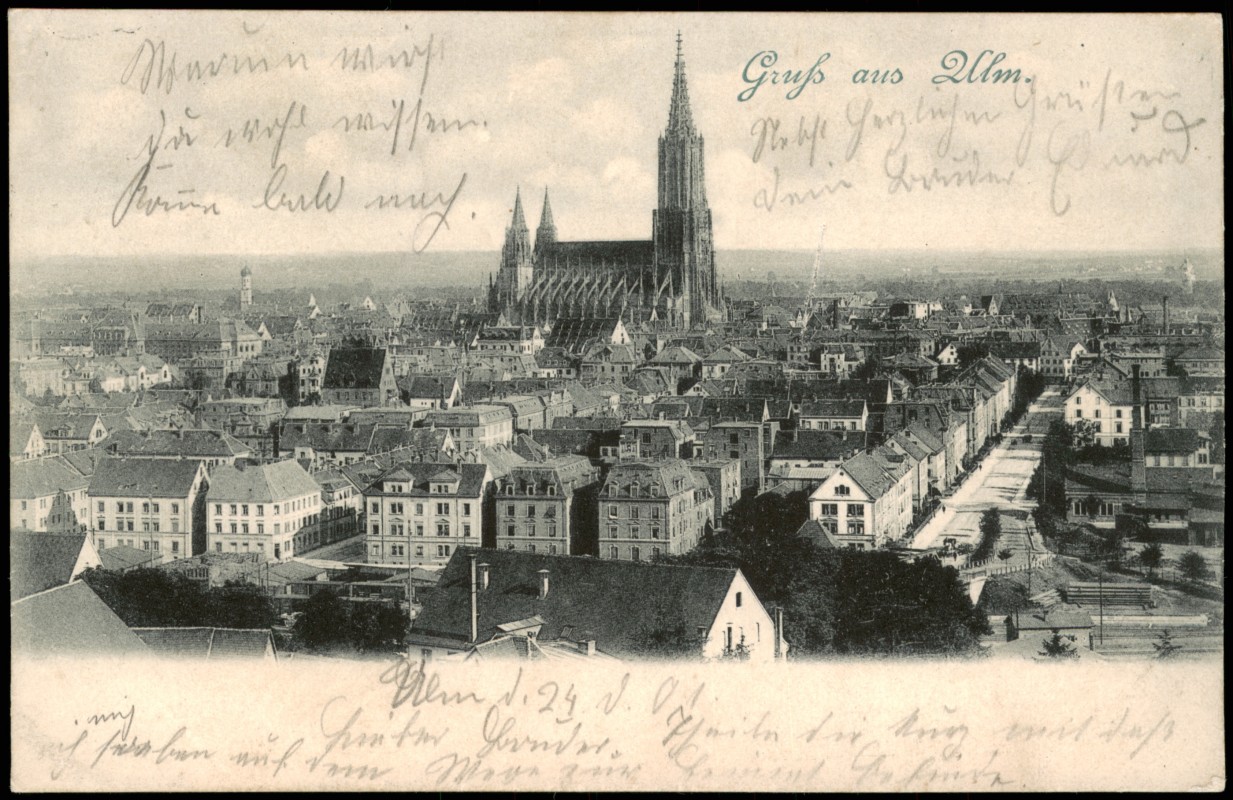 Gruß aus Ulm.
Warum wirst
du wohl wissen.
Komme bald nach.
Nebst herzlichen Grüßen
dein Bruder Eduard
Ulm d. 24
Lieber Bruder. Theile dir kurz mit daß
auf dem Wege zur